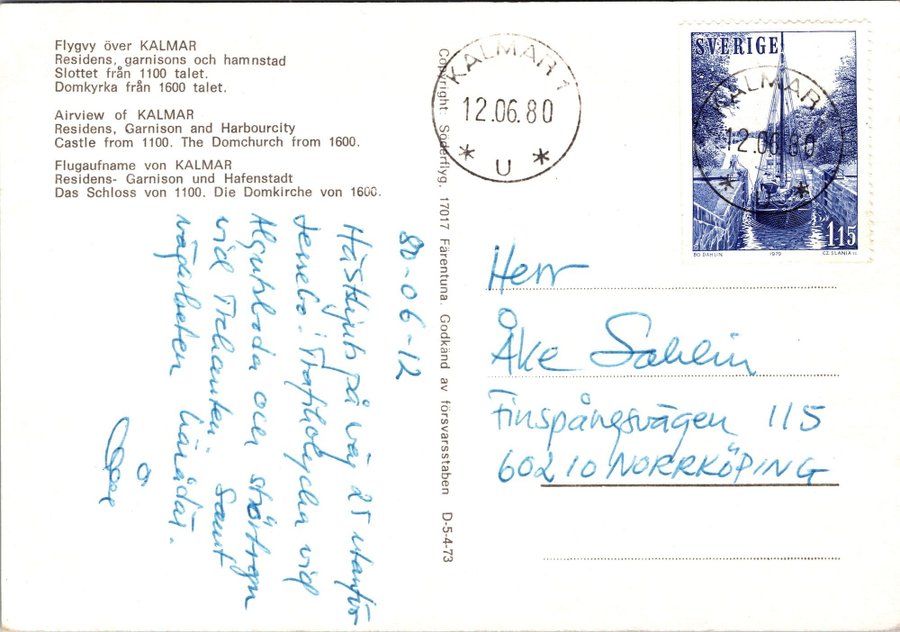 Flygvy över KALMAR
Residens, garnisons och hamnstad
Slottet från 1100 talet.
Domkyrka från 1600 talet.
Airview of KALMAR
Residens, Garnison and Harbourcity
Castle from 1100. The Domchurch from 1600.
Flugaufname von KALMAR
Residens- Garnison und Hafenstadt
Das Schloss von 1100. Die Domkirche von 1600.
80-06-12
Hästskjuts på väg 25 utanför
Lessebo. Trafikolycka vid
Algutsboda och störtregn
vid Trekanten samt
vägarbeten häråt.
Copyright: Söderflyg, 17017 Färentuna. Godkänd av försvarsstaben D-5-4-73
KALMAR 1
12.06.80
* U *
SVERIGE
KALMAR
12.06.80
* U *
115
BO DAHLIN 1979 CZ. SLANIA SC
Herr
Åke Sahlin
Finspångsvägen 115
60210 NORRKÖPING